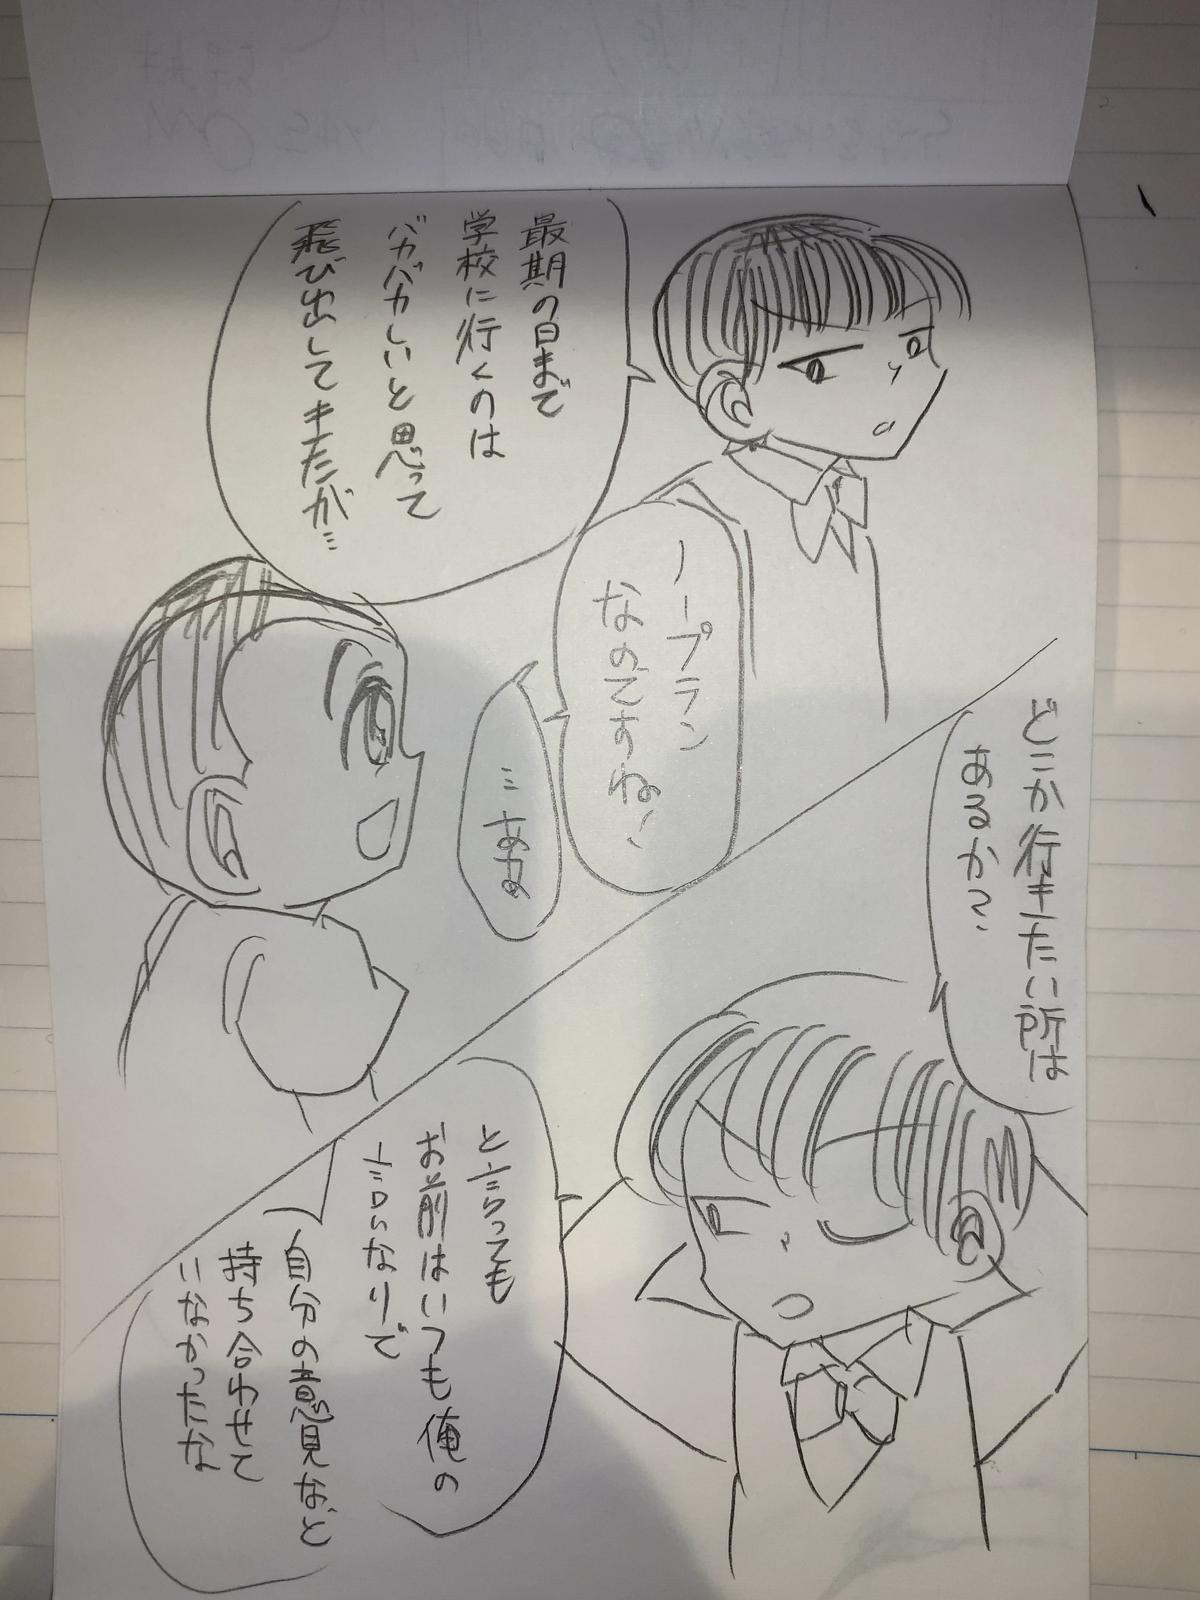 最期の日まで
学校に行くのは
バカバカしいと思って
飛び出してキたが…
ノープラン
なのですね!
…ああ
どこか行きたい所は
あるか?
と言っても
お前はいつも俺の
言いなりで
自分の意見など
持ち合わせて
いなかったな